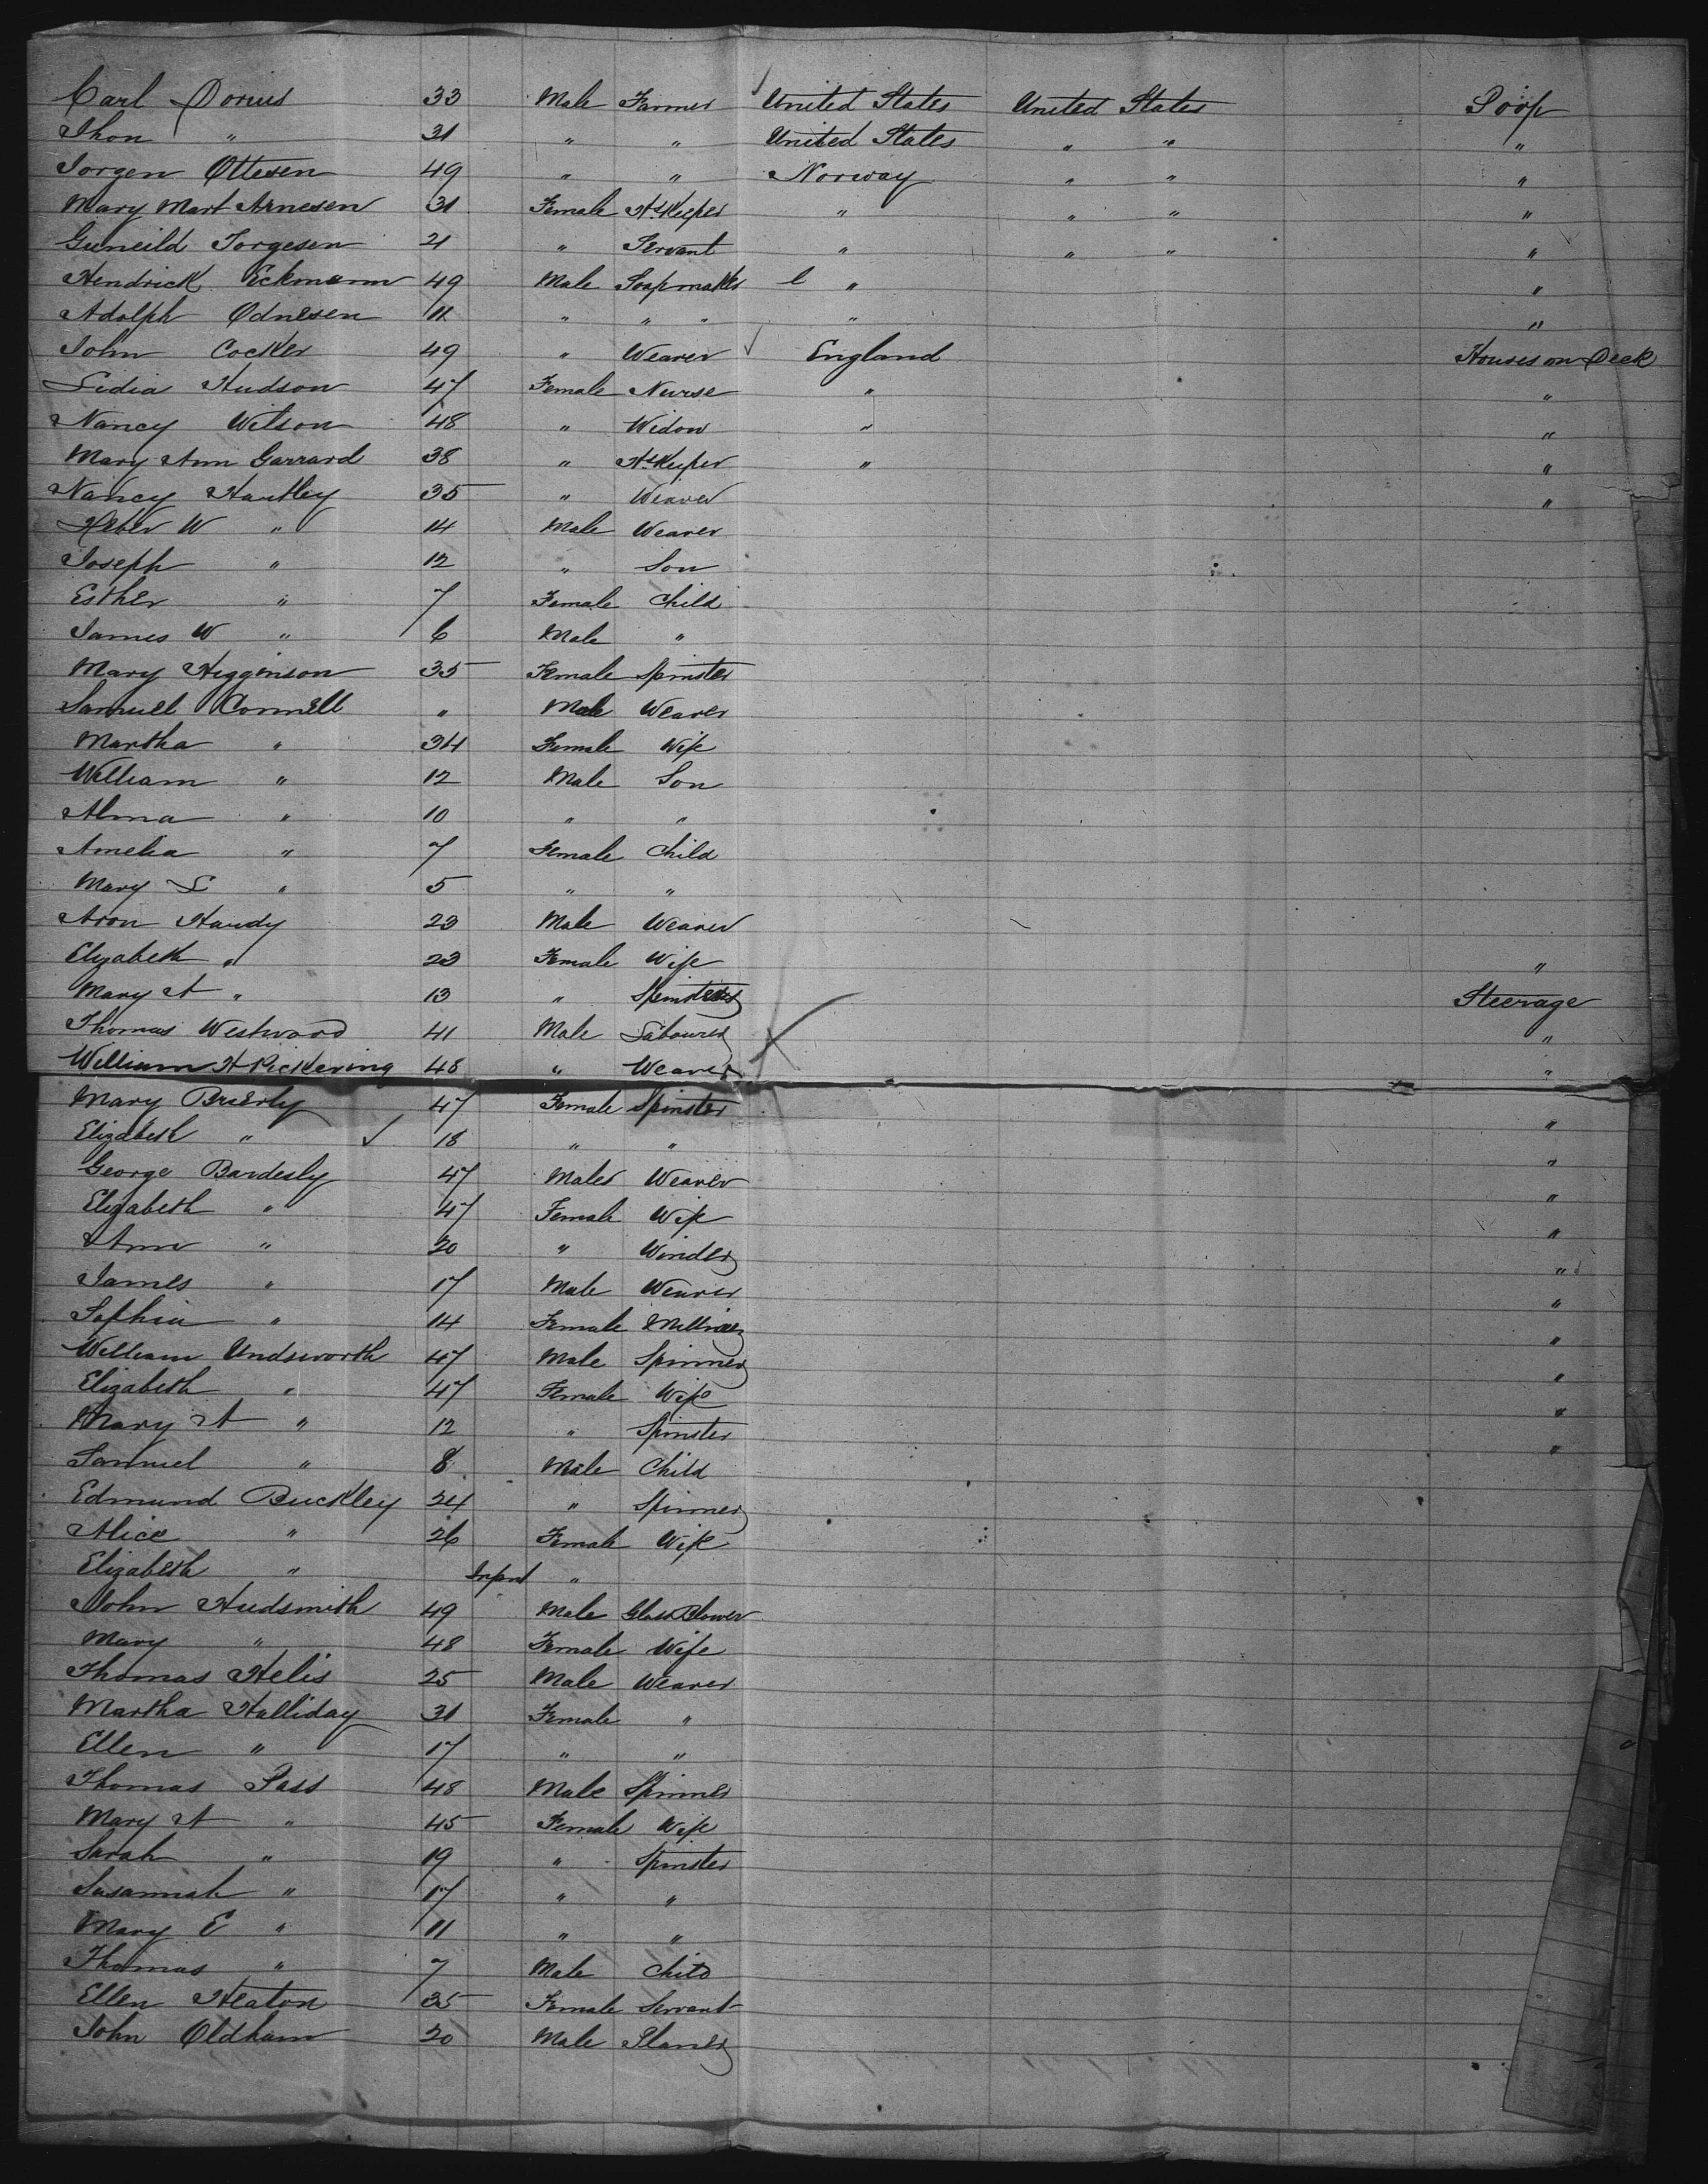 Carl Dorius 33 Male Farmer United States United States Poop
Jhon " 31 " " United States " " "
Jorgen Ottesen 49 " " Norway " " "
Mary Mart Arnesen 31 Female Hs Keeper " " " "
Guneild Torgesen 21 " Servant " " " "
Hendrick Eckmann 49 Male Soapmaker " "
Adolph Odnesen 11 " " " " "
John Cocker 49 " Weaver England Houses on Deck
Lidia Hudson 47 Female Nurse " "
Nancy Wilson 48 " Widow " "
Mary Ann Garrard 38 " Hs Keeper " "
Nancy Hartley 35 " Weaver "
Heber W " 14 Male Weaver
Joseph " 12 " Son
Esther " 7 Female Child
James W " 6 Male "
Mary Higginson 35 Female Spinster
Samuel Connell " Male Weaver
Martha " 34 Female Wife
William " 12 Male Son
Alma " 10 " "
Amelia " 7 Female Child
Mary L " 5 " "
Aron Hardy 23 Male Weaver
Elizabeth " 23 Female Wife "
Mary A " 13 " Spinster Steerage
Thomas Westwood 41 Male Labourer "
William H Pickering 48 " Weaver "
Mary Brierly 47 Female Spinster "
Elizabeth " 18 " " "
George Bardesly 47 Male Weaver "
Elizabeth " 47 Female Wife "
Ann " 20 " Winder "
James " 17 Male Weaver "
Sophia " 14 Female "
William Undsworth 47 Male Spinner "
Elizabeth " 47 Female Wife "
Mary A " 12 " Spinster "
Samuel " 8 Male Child
Edmund Buckley 24 " Spinner
Alice " 26 Female Wife
Elizabeth " Infant "
John Hudsmith 49 Male Glass Blower
Mary " 48 Female Wife
Thomas Helis 25 Male Weaver
Martha Halliday 31 Female "
Ellen " 17 " "
Thomas Pass 48 Male Spinner
Mary A " 45 Female Wife
Sarah " 19 " Spinster
Susannah " 17 " "
Mary E " 11 " "
Thomas " 7 Male Child
Ellen Heaton 35 Female Servant
John Oldham 20 Male